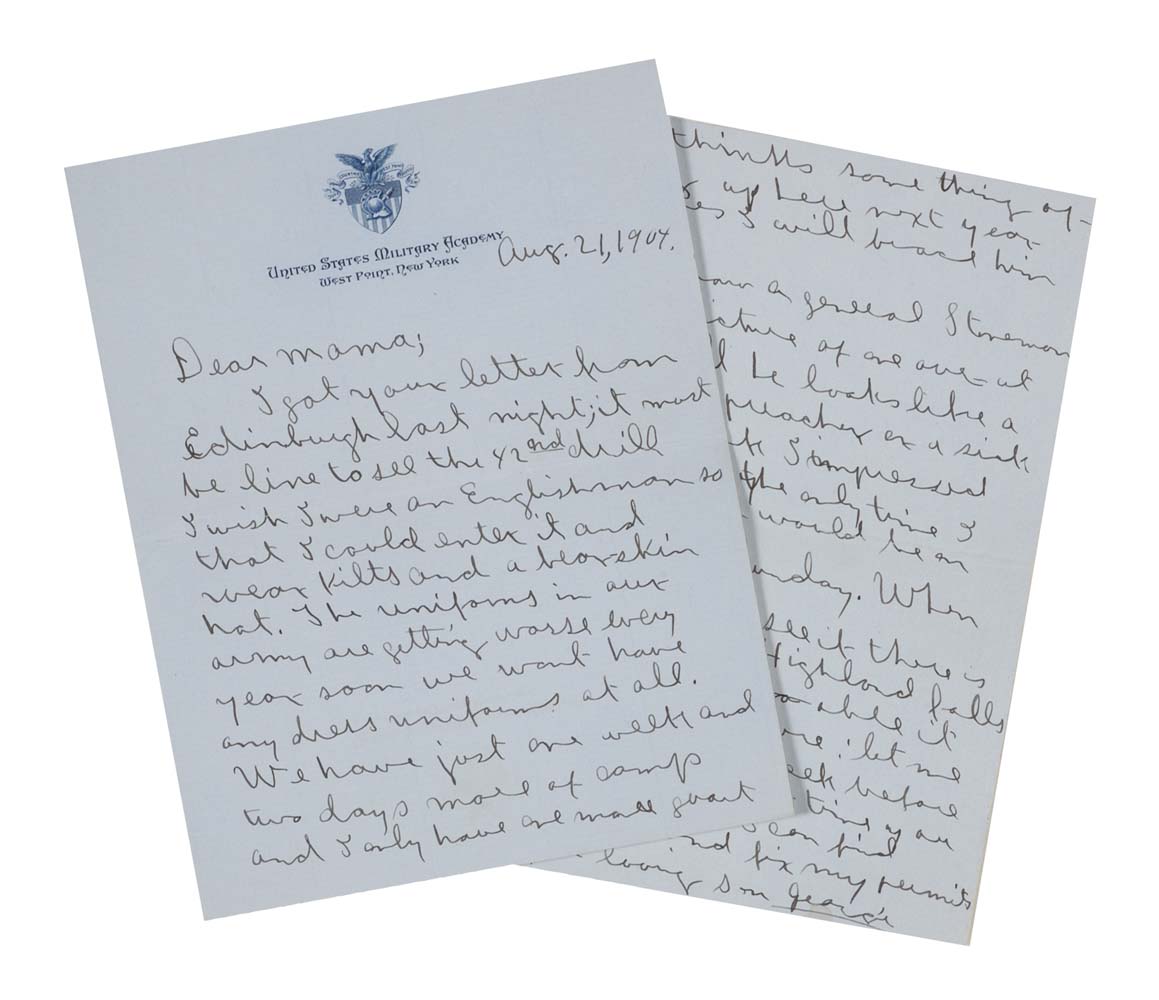 United States Military Academy
West Point, New York
Aug. 21, 1904.
Dear mama;
I got your letter from
Edinburgh last night; it must
be fine to see the 42nd drill
I wish I were an Englishman so
that I could enter it and
wear kilts and a bearskin
hat. The uniforms in our
army are getting worse every
year soon we wont have
any dress uniforms at all.
We have just one week and
two days more of camp
and I only have one more guard
thinks some thing of
up here next year
I will brace him
a general Stoneman
picture of one over at
he looks like a
preacher or a sick
I impressed
the only time I
would be on
When
see it there is
Highland falls
able it
let me
week before
time you
I can find
and fix my permits
loving son George